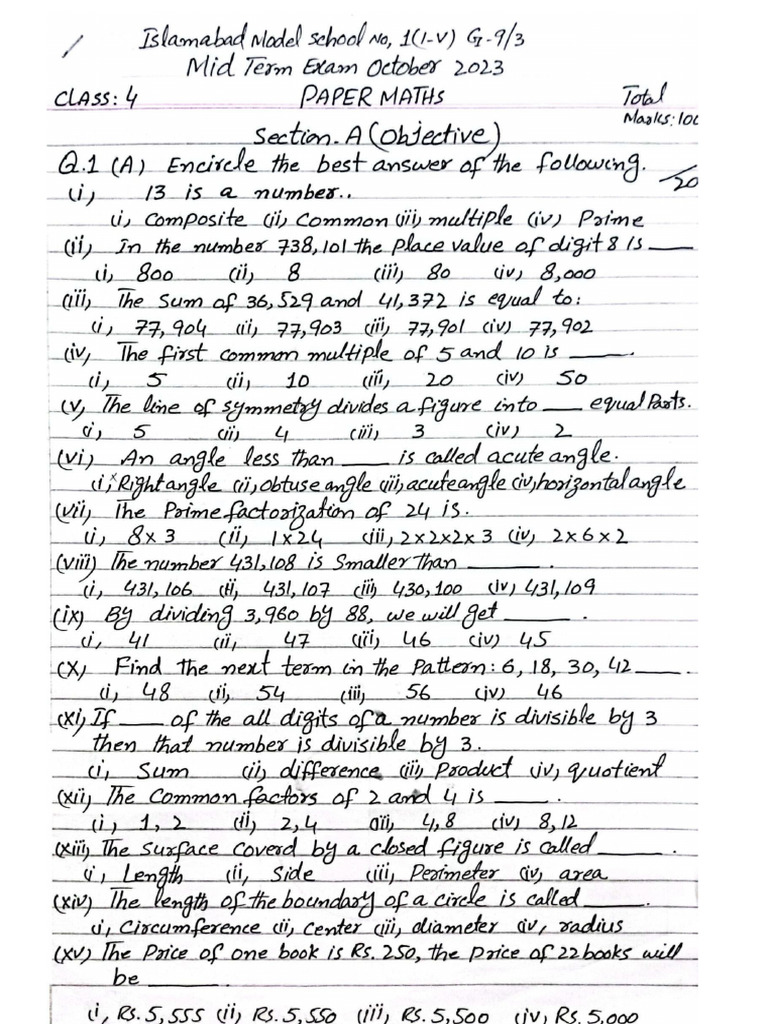 Islamabad Model School No, 1(I-V) G-9/3
Mid Term Exam October 2023
CLASS: 4 PAPER MATHS Total
Marks: 100
Section. A (Objective)
Q.1 (A) Encircle the best answer of the following. /20
(i) 13 is a number..
(i) Composite (ii) Common (iii) multiple (iv) Prime
(ii) In the number 738,101 the Place value of digit 8 is ____
(i) 800 (ii) 8 (iii) 80 (iv) 8,000
(iii) The Sum of 36,529 and 41,372 is equal to:
(i) 77,904 (ii) 77,903 (iii) 77,901 (iv) 77,902
(iv) The first common multiple of 5 and 10 is ____.
(i) 5 (ii) 10 (iii) 20 (iv) 50
(v) The line of symmetry divides a figure into ____ equal Parts.
(i) 5 (ii) 4 (iii) 3 (iv) 2
(vi) An angle less than ____ is called acute angle.
(i) Right angle (ii) obtuse angle (iii) acute angle (iv) horizontal angle
(vii) The Prime factorization of 24 is.
(i) 8×3 (ii) 1×24 (iii) 2×2×2×3 (iv) 2×6×2
(viii) The number 431,108 is Smaller than ____.
(i) 431,106 (ii) 431,107 (iii) 430,100 (iv) 431,109
(ix) By dividing 3,960 by 88, we will get ____.
(i) 41 (ii) 47 (iii) 46 (iv) 45
(X) Find the next term in the Pattern: 6, 18, 30, 42 ____.
(i) 48 (ii) 54 (iii) 56 (iv) 46
(xi) If ____ of the all digits of a number is divisible by 3
then that number is divisible by 3.
(i) Sum (ii) difference (iii) Product (iv) quotient
(xii) The Common factors of 2 and 4 is ____.
(i) 1, 2 (ii) 2,4 (iii) 4,8 (iv) 8,12
(xiii) The Surface Coverd by a closed figure is called ____.
(i) Length (ii) Side (iii) Perimeter (iv) area
(xiv) The length of the boundary of a circle is called ____.
(i) Circumference (ii) Center (iii) diameter (iv) radius
(xv) The Price of one book is Rs. 250, the Price of 22 books will
be ____.
(i) Rs. 5,555 (ii) Rs. 5,550 (iii) Rs. 5,500 (iv) Rs. 5,000